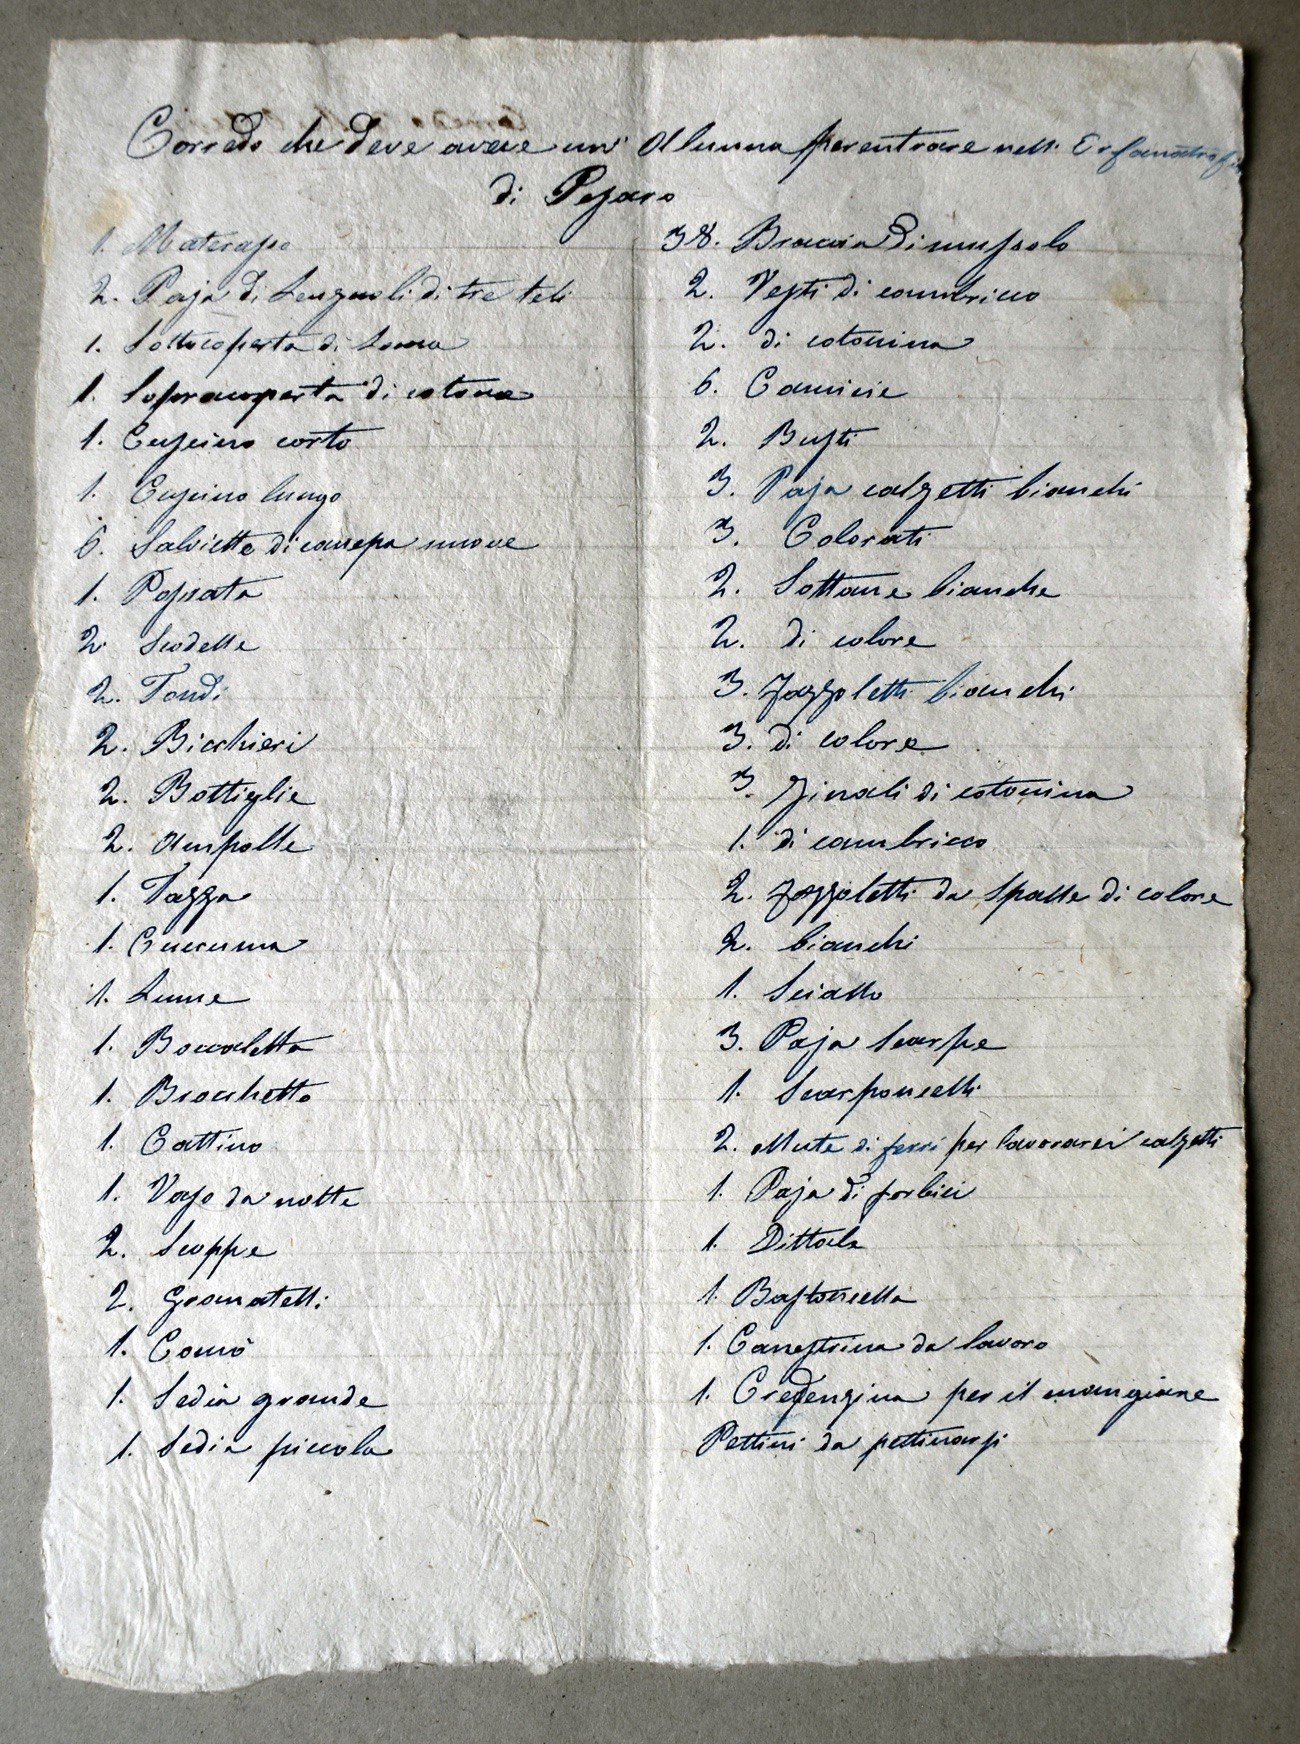 Corredo che deve avere un' Alunna per entrare nell' Orfanotrofio
di Pesaro
1. Materasso
2. Paja di Lenzuoli di tre teli
1. Sottocoperta di Lana
1. Sopracoperta di cotone
1. Cuscino corto
1. Cuscino lungo
6. Salviette di canepa nuove
1. Possata
2. Scodelle
2. Tondi
2. Bicchieri
2. Bottiglie
2. Ampolle
1. Tazza
1. Cuccuma
1. Lume
1. Boccaletta
1. Brocchetto
1. Cattino
1. Vaso da notte
2. Scoppe
2. Granatelli
1. Comò
1. Sedia grande
1. Sedia piccola
38. Braccia di mussolo
2. Vesti di cambricco
2. di cotonina
6. Camicie
2. Busti
3. Paja calzetti bianchi
3. Colorati
2. Sottane bianche
2. di colore
3. Fazzoletti bianchi
3. di colore
3. Zinali di cotonina
1. di cambricco
2. Fazzoletti da Spalle di colore
2. bianchi
1. Sciallo
3. Paja Scarpe
1. Scarponcelli
2. Mute di ferri per lavorare i calzetti
1. Paja di forbici
1. Dittale
1. Bastoncella
1. Canestrina da lavoro
1. Credenzina per il mangiare
Pettini da pettinarsi